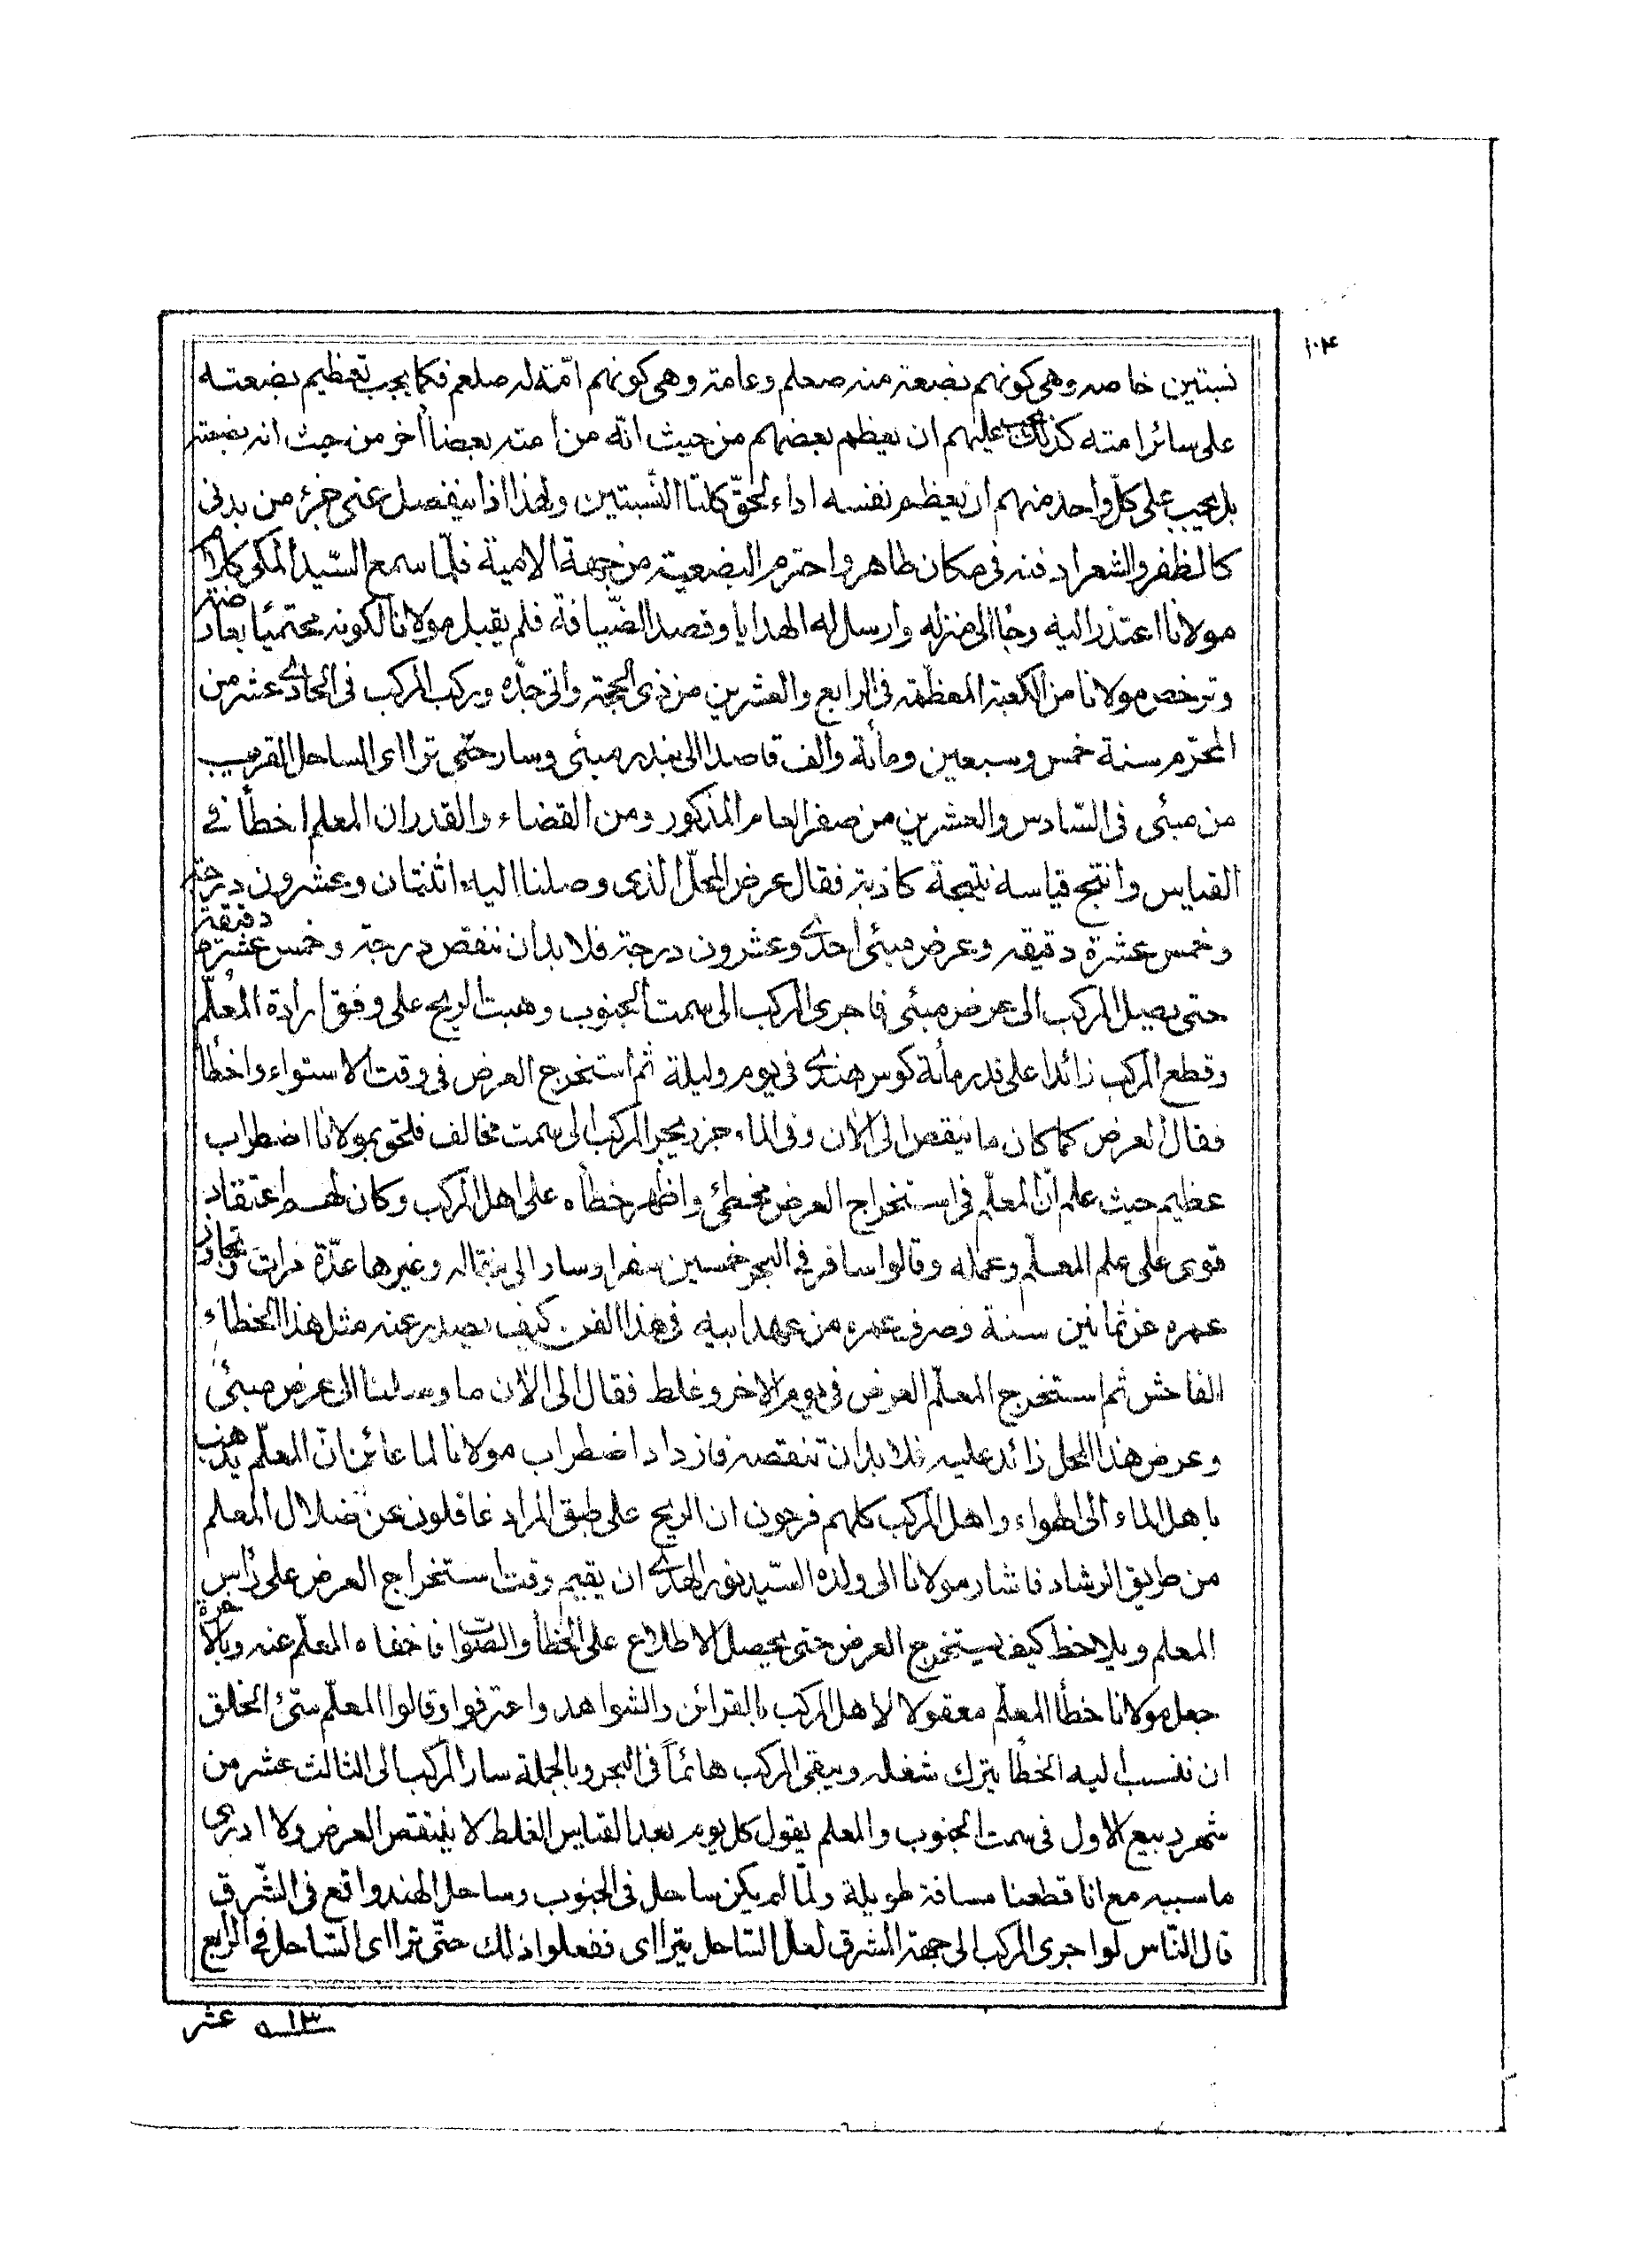 ١٠٤
نسبتين خاصه وهى كونهم بضعة منه صعلم وعامة وهى كونهم امّة له صلعم فكما يجب تعظيم بضعته
على سائر امته كذلك يجب عليهم ان يعظم بعضهم من حيث انّه من امته بعضا آخر من حيث انه بضعته
بل يجب على كلّ واحد منهم ان يعظم نفسه اداء لحقّ كلتا النّسبتين ولهذا اذا ينفصل عنى جزء من بدنى
كالظفر والشعر ادفنه فى مكان طاهر واحترم البضعية من جهة الامية فلمّا سمع السّيد المكى كلام
مولانا اعتذر اليه وجاا لى منزله وارسل له الهدايا وقصد الضّيافة فلم يقبل مولانا لكونه محتميًا بعارضة
وترخص مولانا من الكعبة المعظّمة فى الرابع والعشرين من ذى الحجة واتى جدّه وركب المركب فى الحادى عشر من
المحرّم سنة خمس وسبعين ومأية والف قاصدا الى بندر مبئى وسار حتّى تراأى الساحل القريب
من مبئى فى السّادس والعشرين من صفر العام المذكور ومن القضاء والقدر ان المعلم اخطأ فى
القياس وانتج قياسه نتيجة كاذبة فقال عرض المحلّ الذى وصلنا اليه اثنتان وعشرون درجة
وخمس عشرة دقيقه وعرض مبئى احدى وعشرون درجة فلا بد ان ننقص درجة وخمس عشرة دقيقة
حتى يصيل المركب الى عرض مبئى فاجرى المركب الى سمت الجنوب وهبت الريح على وفق ارادة المُعلّم
وقطع المركب زائدا على قدر مأية كوس هندى فى يوم وليلة ثم استخرج العرض فى وقت الاستواء واخطأ
فقال العرض كما كان ما نيقص الى الآن وفى الماء جزر يجر المركب الى سمت مخالف فلحق بمولانا اضطراب
عظيم حيث علم انّ المعلّم فى استخراج العرض مخطئ واظهر خطأه على اهل المركب وكان لهم اعتقاد
قوى على علم المعلّم وعمله وقالوا سافر فى البحر خمسين سفرا وسار الى بنگاله وغيرها عدّة مرات وتجاوز
عمره عن ثمانين سنة وصرف عمره من عهد ابيه فى هذا الفن كيف يصدر عنه مثل هذا الخطاء
الفاحش ثم استخرج المعلّم العرض فى يوم الاخر وغلط فقال الى الآن ما وصلنا الى عرض مبئى
وعرض هذا المحل زائد عليه فلا بد ان تنقصه فازداد اضطراب مولانا لما عائن انّ المعلّم يذهب
باهل الماء الى الهواء واهل المركب كلهم فرحون ان الريح على طبق المراد غافلون عن ضلال المعلم
من طريق الرشاد فاشار مولانا الى ولده السّيد نور الهدى ان يقيم وقت استخراج العرض على رأس
المعلم ويلاحظ كيف يستخرج العرض حتى يحصل الاطلاع على الخطأ والصّواب فاخفاه المعلّم عنه وبالآخرة
جعل مولانا خطأ المعلّم معقولا لاهل المركب بالقرائن والشواهد واعترفوا وقالوا المعلّم سّئ الخلق
ان ننسب اليه الخطأ يترك شغله ويبقى المركب هائمًا فى البحر وبالجملة سار المركب الى الثالث عشر من
شهر ربيع الاول فى سمت الجنوب والمعلم يقول كل يوم بعد القياس الغلط لا ينتقص العرض ولا ادرى
ما سببه مع انا قطعنا مسافة طويلة ولمّا لم يكن ساحل فى الجنوب وساحل الهند واقع فى الشّرق
قال النّاس لو اجرى المركب الى جهة المشرق لعل السّاحل يتراأى ففعلوا ذلك حتّى تراأى السّاحل فى الرابع
عشر